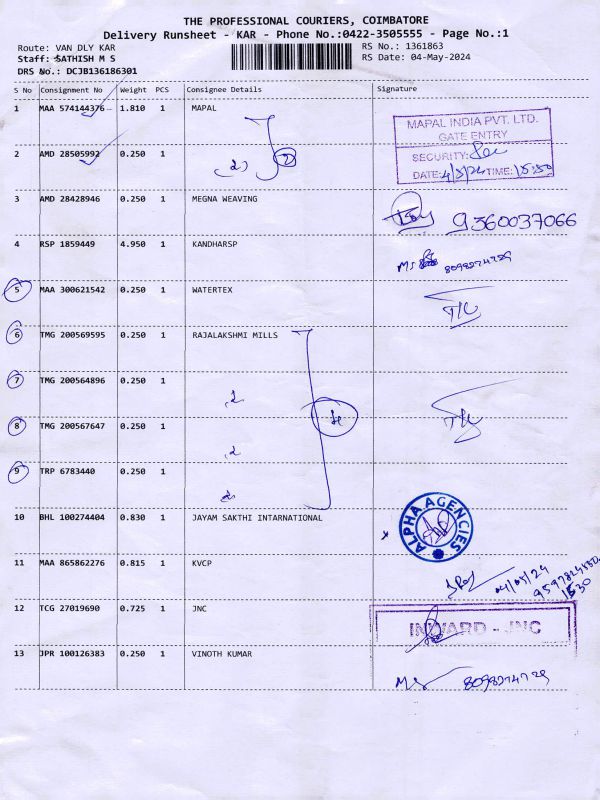 THE PROFESSIONAL COURIERS, COIMBATORE
Delivery Runsheet - KAR - Phone No.:0422-3505555 - Page No.:1
Route: VAN DLY KAR
RS No.: 1361863
Staff: SATHISH M S
RS Date: 04-May-2024
DRS No.: DCJB136186301
S No Consignment No Weight PCS Consignee Details Signature
1 MAA 574144376 1.810 1 MAPAL
MAPAL INDIA PVT. LTD.
GATE ENTRY
2 AMD 28505992 0.250 1
SECURITY:
DATE: 4/5/24 TIME: 15:30
3 AMD 28428946 0.250 1 MEGNA WEAVING
9360037066
4 RSP 1859449 4.950 1 KANDHARSP
8098274729
5 MAA 300621542 0.250 1 WATERTEX
6 TMG 200569595 0.250 1 RAJALAKSHMI MILLS
7 TMG 200564896 0.250 1
8 TMG 200567647 0.250 1
9 TRP 6783440 0.250 1
10 BHL 100274404 0.830 1 JAYAM SAKTHI INTARNATIONAL
ALPHA AGENCIES
11 MAA 865862276 0.815 1 KVCP
04/05/24
12 TCG 27019690 0.725 1 JNC
INWARD - JNC
13 JPR 100126383 0.250 1 VINOTH KUMAR
8098274729